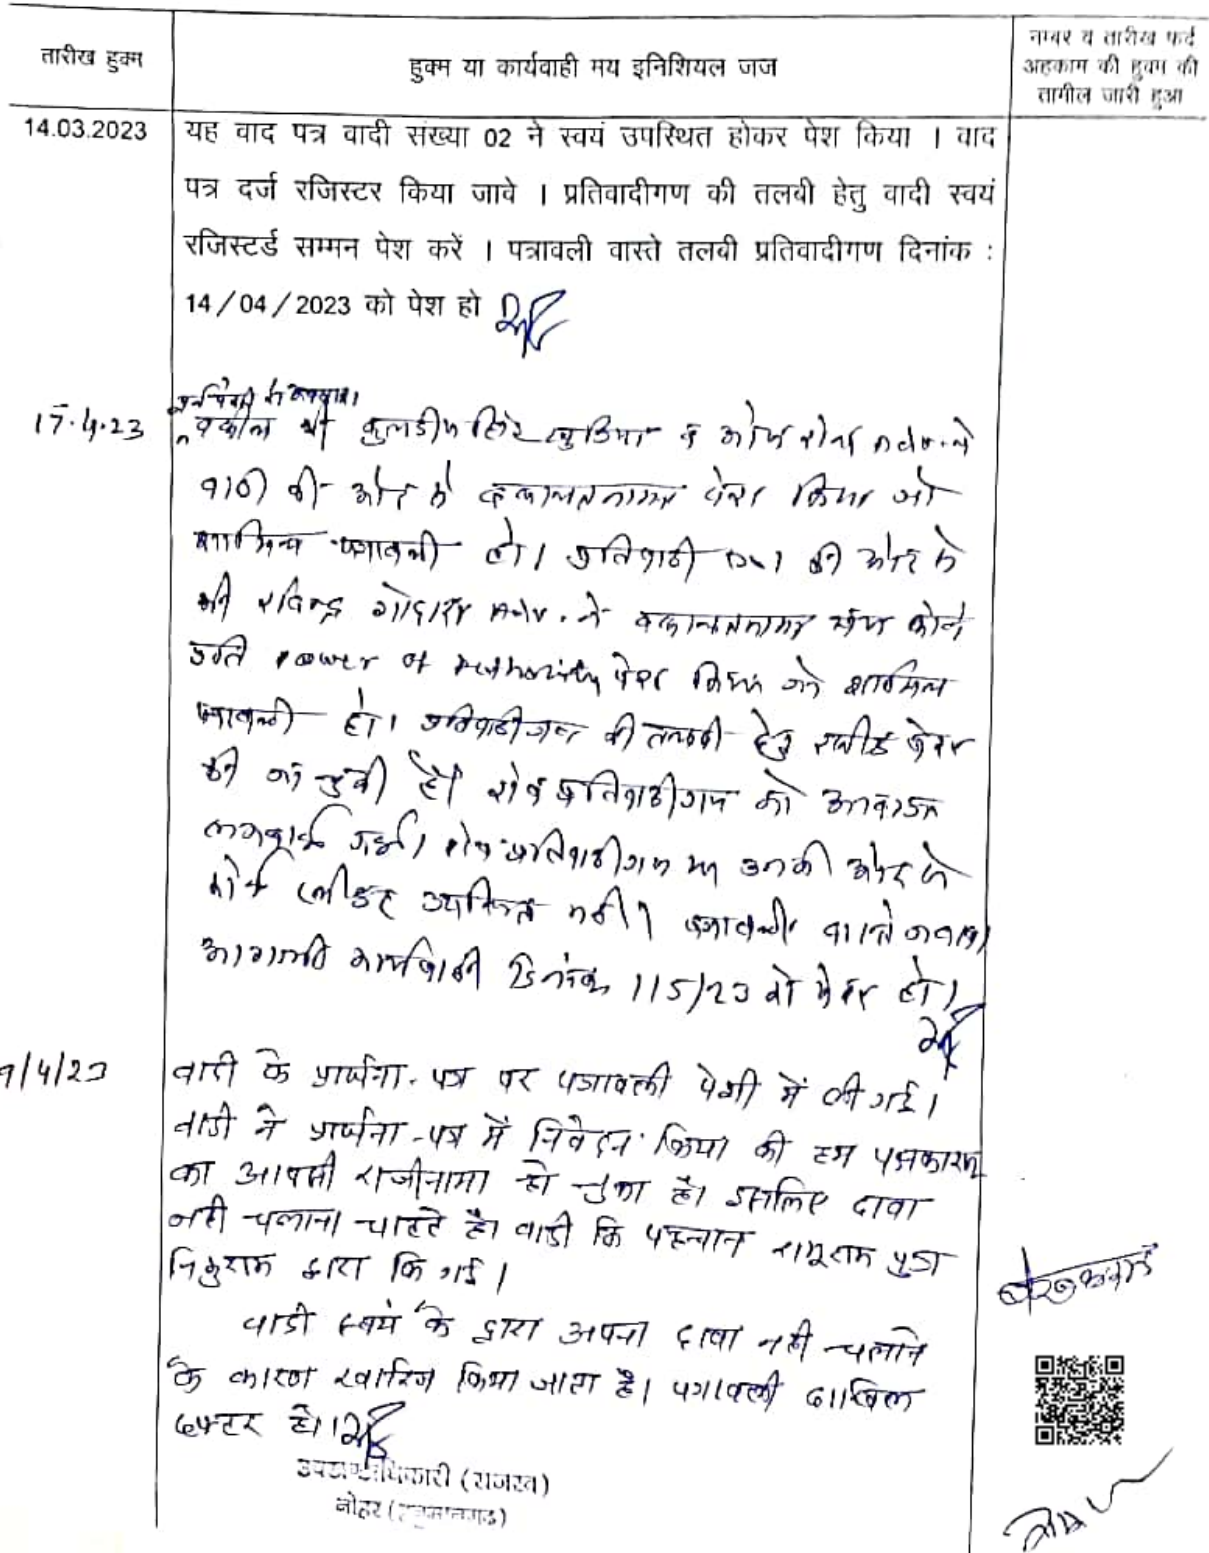 तारीख हुक्म
हुक्म या कार्यवाही मय इनिशियल जज
नम्बर व तारीख फर्द
अहकाम की हुक्म की
तामील जारी हुआ
14.03.2023
यह वाद पत्र वादी संख्या 02 ने स्वयं उपस्थित होकर पेश किया । वाद
पत्र दर्ज रजिस्टर किया जावे । प्रतिवादीगण की तलवी हेतु वादी स्वयं
रजिस्टर्ड सम्मन पेश करें । पत्रावली वास्ते तलवी प्रतिवादीगण दिनांक :
14/04/2023 को पेश हो
17.4.23
वकील श्री कुलदीप सिंह व ने
वादी की ओर से वकालतनामा पेश किया जो
शामिल पत्रावली हो। प्रतिवादी की ओर से
श्री रविन्द्र गोदारा Adv. ने वकालतनामा
प्रति Power of पेश किया जो शामिल
पत्रावली हो। प्रतिवादीगण की तलवी हेतु
की जा चुकी है। शेष प्रतिवादीगण को आवाज
लगवाई गई। शेष प्रतिवादीगण या उनकी ओर से
कोई प्लीडर उपस्थित नही। पत्रावली वास्ते जवाब
आगामी कार्यवाही दिनांक 1/5/23 को पेश हो।
9/4/23
वादी के प्रार्थना-पत्र पर पत्रावली पेशी में ली गई।
वादी ने प्रार्थना-पत्र में निवेदन किया की हम पक्षकारान
का आपसी राजीनामा हो चुका है। इसलिए दावा
नही चलाना चाहते है। वादी कि पहचान रामूराम पुत्र
द्वारा कि गई।
वादी स्वयं के द्वारा अपना दावा नही चलाने
के कारण खारिज किया जाता है। पत्रावली दाखिल
दफ्तर हो।
उपखण्ड अधिकारी (राजस्व)
नोहर (हनुमानगढ)